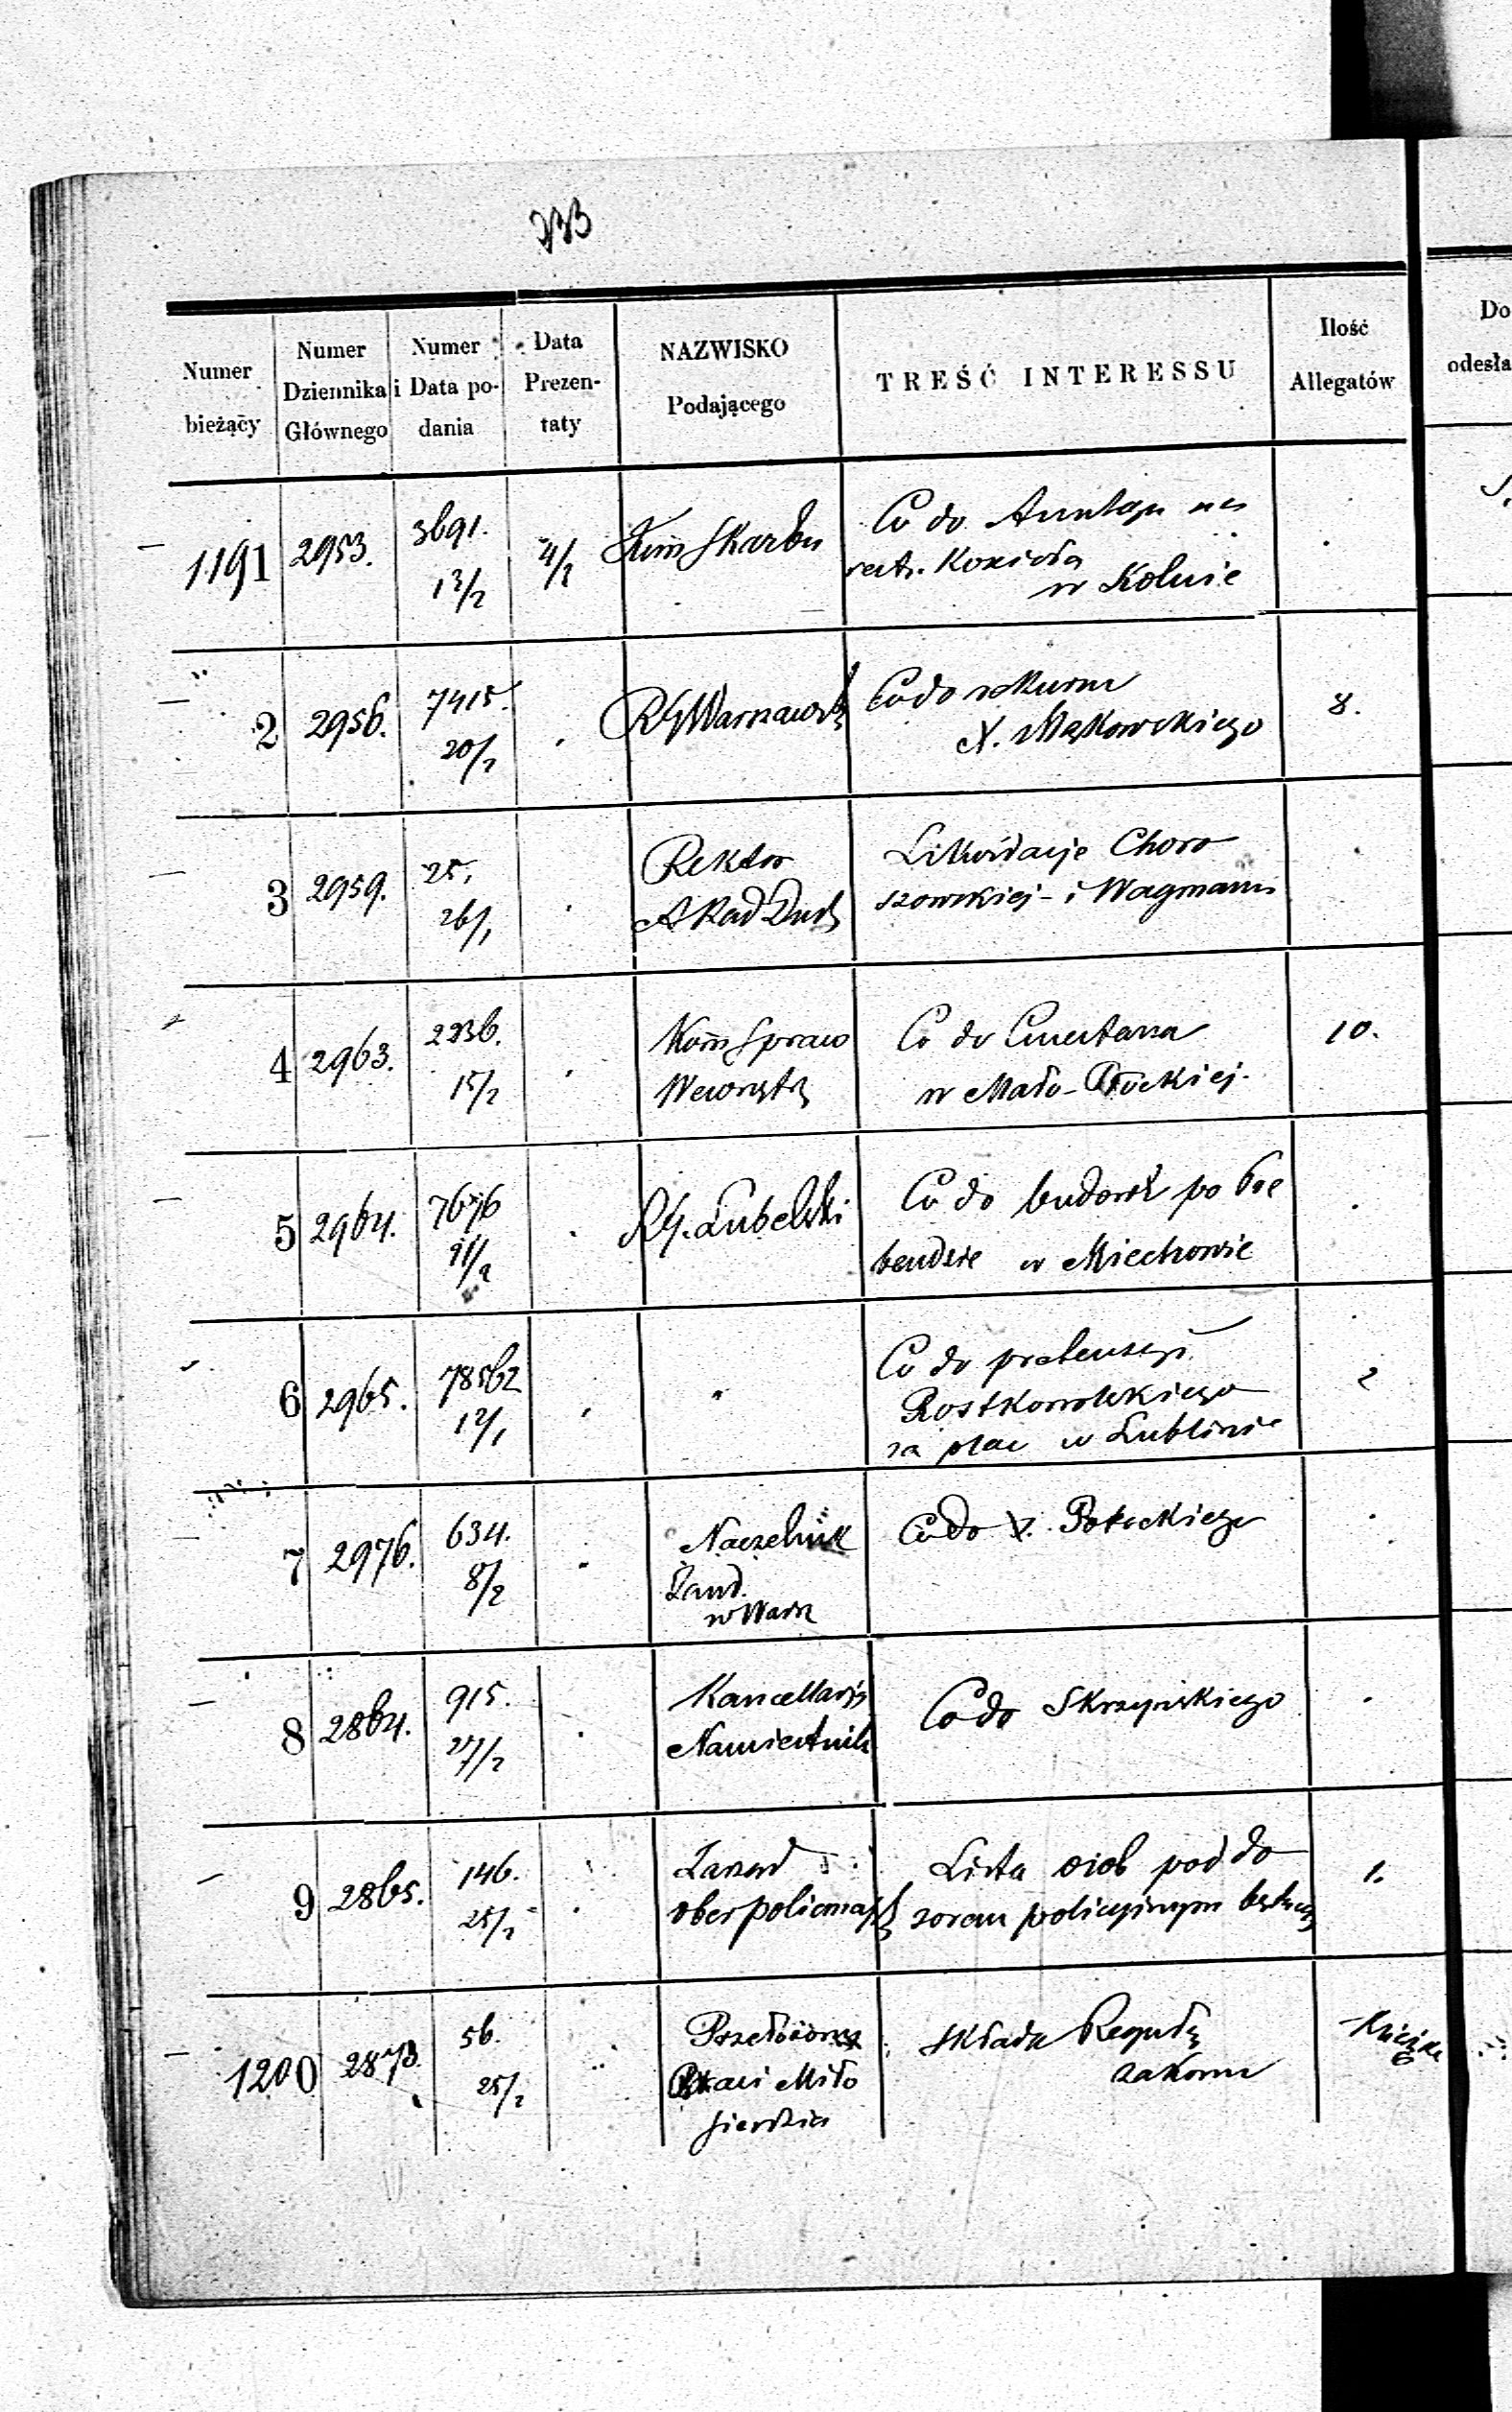 233
Numer bieżący
Numer Dziennika Głównego
Numer i Data podania
Data Prezentaty
NAZWISKO Podającego
TREŚĆ INTERESSU
Ilość Allegatów
Do
odesła
1191 2953. 3691. 13/2 4/2 Kom Skarbu
Co do na
restr. Kościoła
w Kolnie
2 2956. 7415. 20/2 RG Warszawsk
Co do rekursu
X. Mąkowskiego
8.
3 2959. 25. 26/1
Rektor
Akad Duch
Likwidacje Choro
szowskiej - i Wagmana
4 2963. 2236. 15/2
Kom Spraw
Wewnętrz
Co do Cmentarza
w Mało-Płockiej.
10.
5 2964. 7676 RG. Lubelski
Co do budowli po Pre
bendzie w Miechowie
6 2965. 78562 12/1 "
Co do pretensyi
Rostkowskiego
za plac w Lublinie
2
7 2976. 634. 8/2
Naczelnik
Żand.
w Warsz
Co do X. Potockiego
8 2864. 915. 27/2
Kancellarya
Namiestnik
Co do Skrzyńskiego
9 2865. 146. 25/2
Zarząd
oberpolicmajs
Lista osob pod do
zorem policyjnym będący
1.
1200 2873. 56. 25/2
Przełożony
Braci Miło
sierdzia
składa Regułę
zakonu